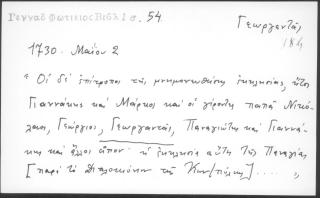 Γενναδ Φωτιείος Βιβλ 1 σ. 54.
Γεωργαντάς
184
1730. Μαίου 2
" Οἱ δὲ ἐπίτροποι τῆς μνημονευθείσης ἐκκλησίας, ἤτοι
Γιαννάκης καὶ Μάρκος καὶ οἱ γέροντες παπᾶ Νικό-
λαος, Γεώργιος, Γεωργαντάς, Παναγιώτης καὶ Γιαννά-
κης καὶ ἄλλοι εἶπον· ἡ ἐκκλησία αὕτη τῆς Παναγίας
[παρὰ τὸ Διπλοκιόνιον τῆς Κων/πόλεως] .... "